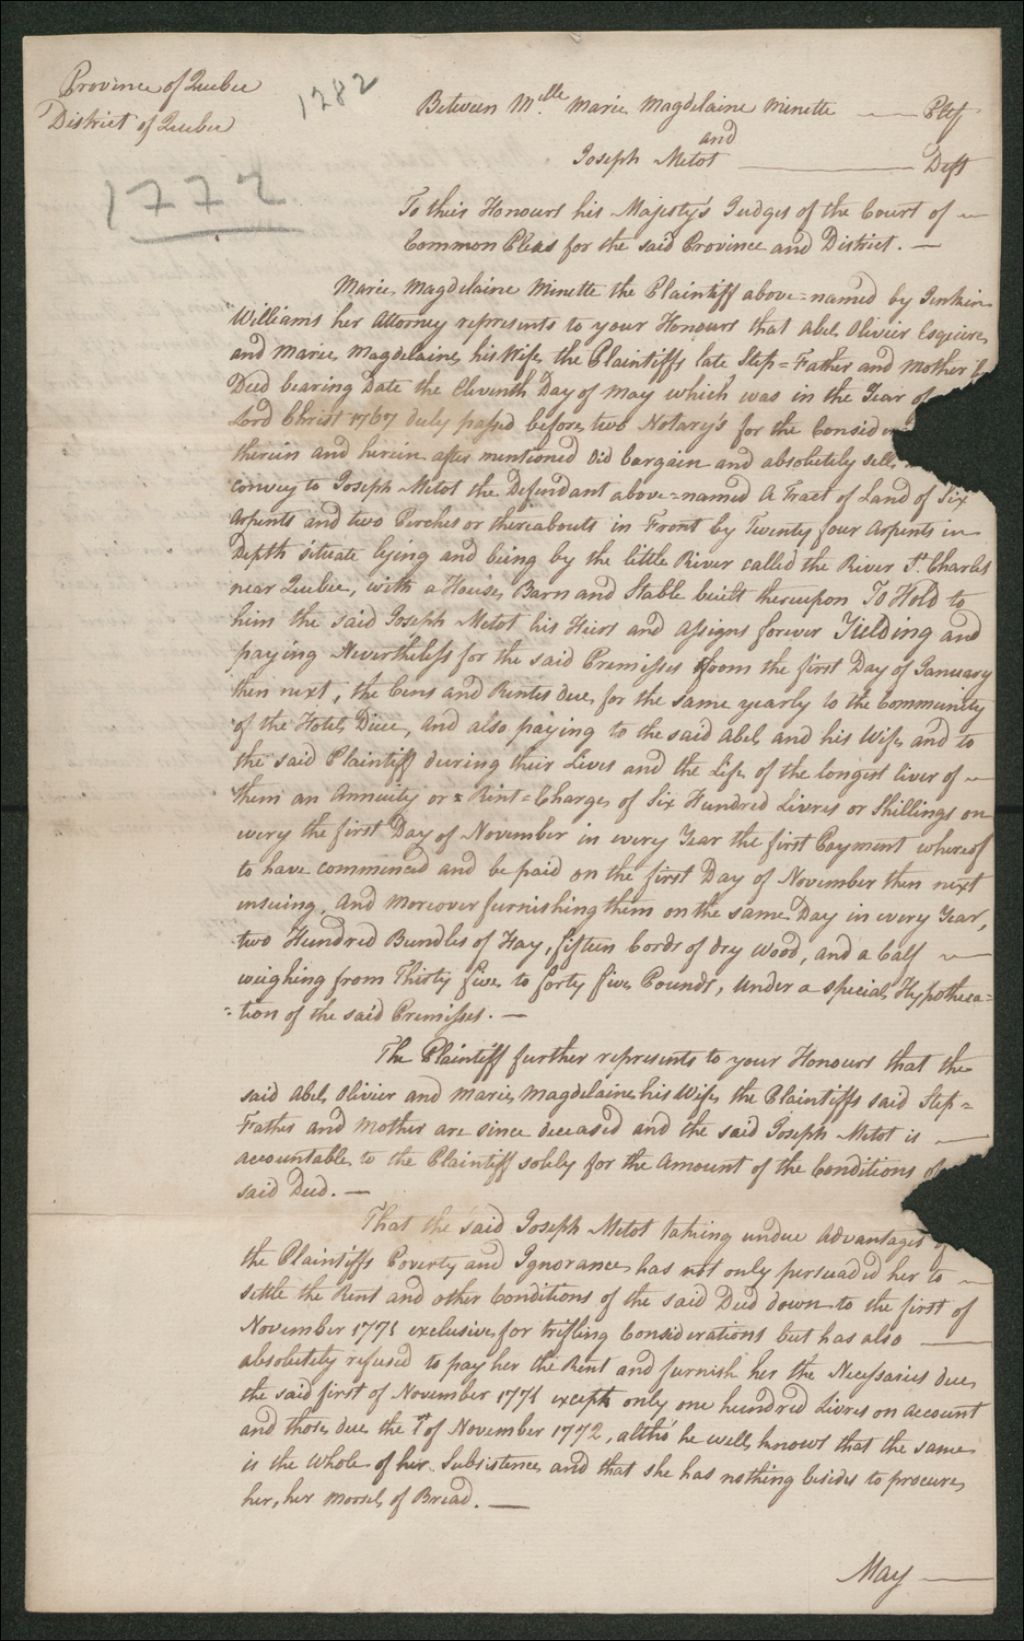 Province of Quebec
District of Quebec
1282
1772
Between Mlle. Marie Magdelaine Minette — Pltf
and
Joseph Metot — Deft
To their Honours his Majesty's Judges of the Court of
Common Pleas for the said Province and District. —
Marie Magdelaine Minette the Plaintiff above=named by Jenkin
Williams her Attorney represents to your Honours that Abel Olivier Esquire
and Marie Magdelaine his Wife the Plaintiffs late Step=Father and Mother
Deed bearing Date the Eleventh Day of May which was in the Year of
Lord Christ 1767 duly passed before two Notary's for the Consider
therein and herein after mentioned Did bargain and absolutely sell
convey to Joseph Metot the Defendant above=named A Tract of Land of Six
Arpents and two Perches or thereabouts in Front by Twenty four Arpents in
Depth situate lying and being by the little River called the River St. Charles
near Quebec, with a House Barn and Stable built thereupon To Hold to
him the said Joseph Metot his Heirs and Assigns forever Yielding and
paying Nevertheless for the said Premisses from the first Day of January
then next, the Cens and Rentes due for the same yearly to the Community
of the Hotel Dieu, and also paying to the said Abel and his Wife and to
the said Plaintiff during their Lives and the Life of the longest liver of
them an Annuity or Rent=Charge of Six Hundred Livres or Shillings on
every the first Day of November in every Year the first Payment whereof
to have commenced and be paid on the first Day of November then next
ensuing. And Moreover furnishing them on the same Day in every Year,
two Hundred Bundles of Hay, fifteen Cords of dry Wood, and a Calf
weighing from Thirty five to forty five Pounds, under a special Hypotheca=
=tion of the said Premisses. —
The Plaintiff further represents to your Honours that the
said Abel Olivier and Marie Magdelaine his Wife the Plaintiffs said Step=
Father and Mother are since deceased and the said Joseph Metot is
accountable to the Plaintiff solely for the Amount of the Conditions of
said Deed. —
That the said Joseph Metot taking undue Advantages
the Plaintiffs Poverty and Ignorance has not only persuaded her to
settle the Rent and other Conditions of the said Deed down to the first of
November 1771 exclusive for trifling Considerations but has also
absolutely refused to pay her the Rent and furnish her the Necessaries due
the said first of November 1771 except only one hundred Livres on account
and those due the 1st of November 1772, altho' he well knows that the same
is the whole of her Subsistence and that she has nothing besides to procure
her, her morsel of Bread. —
May